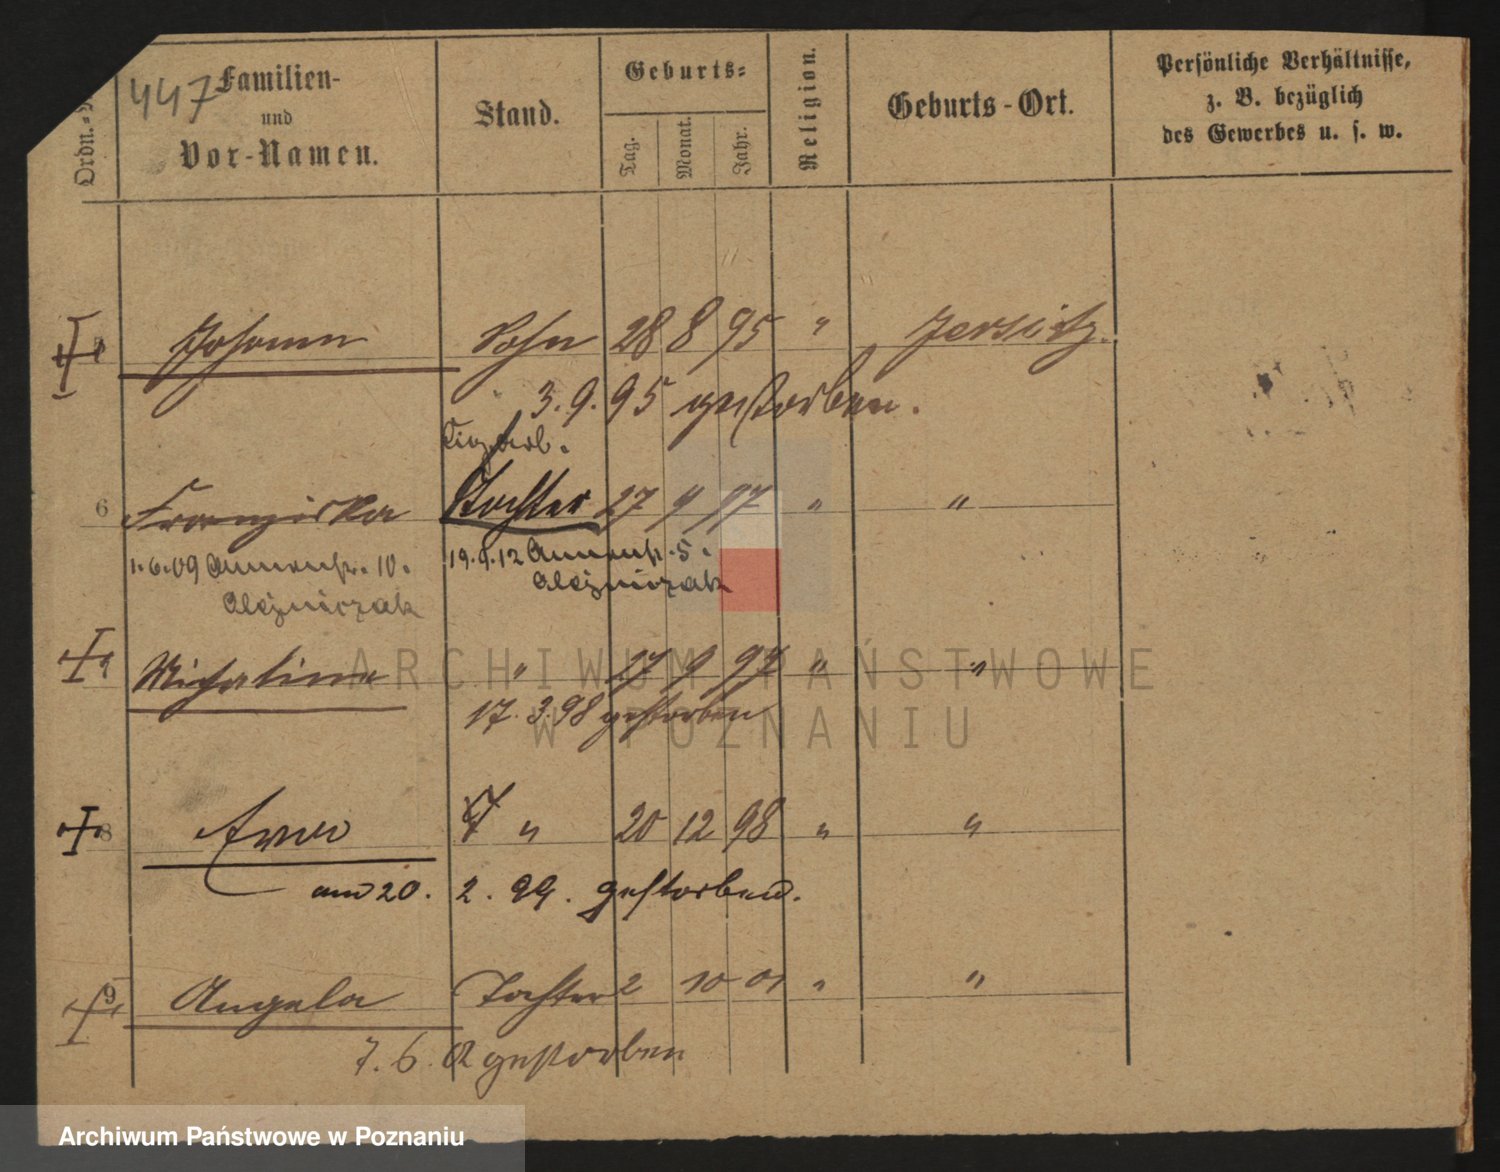 447
Ordn.=
Familien-
und
Vor-Namen.
Stand.
Geburts=
Tag.
Monat.
Jahr.
Religion.
Geburts-Ort.
Persönliche Verhältnisse,
z. B. bezüglich
des Gewerbes u. s. w.
Johann Sohn 28 8 95 " Jersitz.
3.9.95 gestorben.
6 Franziska Tochter 27 9 97 " "
1.6.09 Annenstr. 10. 19.9.12 Annenstr. 5.
Olejniczak Olejniczak
Michalina " 27 9 97 " "
17.3.98 gestorben
ARCHIWUM PAŃSTWOWE
W POZNANIU
8 Ewa " 20 12 98 " "
am 20. 2. 99. gestorben.
9 Angela Tochter 2 10 01 " "
7.6.02 gestorben
Archiwum Państwowe w Poznaniu